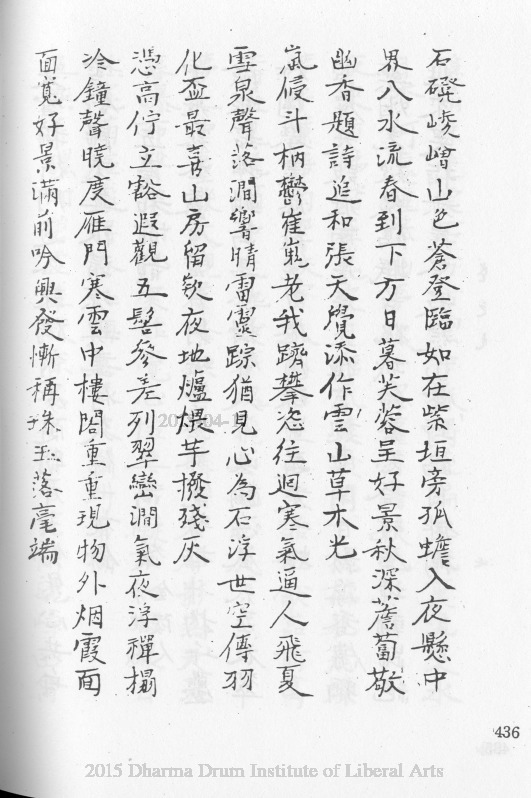 石磴峻嶒山色蒼登臨如在紫垣旁孤蟾入夜懸中
界八水流春到下方日暮芙蓉呈好景秋深薝蔔散
幽香題詩追和張天覺添作雲山草木光
嵐侵斗柄鬱崔嵬老我躋攀恣往迴寒氣逼人飛夏
雪泉聲落澗響晴雷靈踪猶見心為石浮世空傳羽
化盃最喜山房留歇夜地爐煨芋撥殘灰
憑高佇立豁遐觀五髻參差列翠巒澗氣夜浮禪榻
冷鐘聲曉度雁門寒雲中樓閣重重現物外烟霞面
面寬好景滿前吟興發慚稱珠玉落毫端
436
2015 Dharma Drum Institute of Liberal Arts